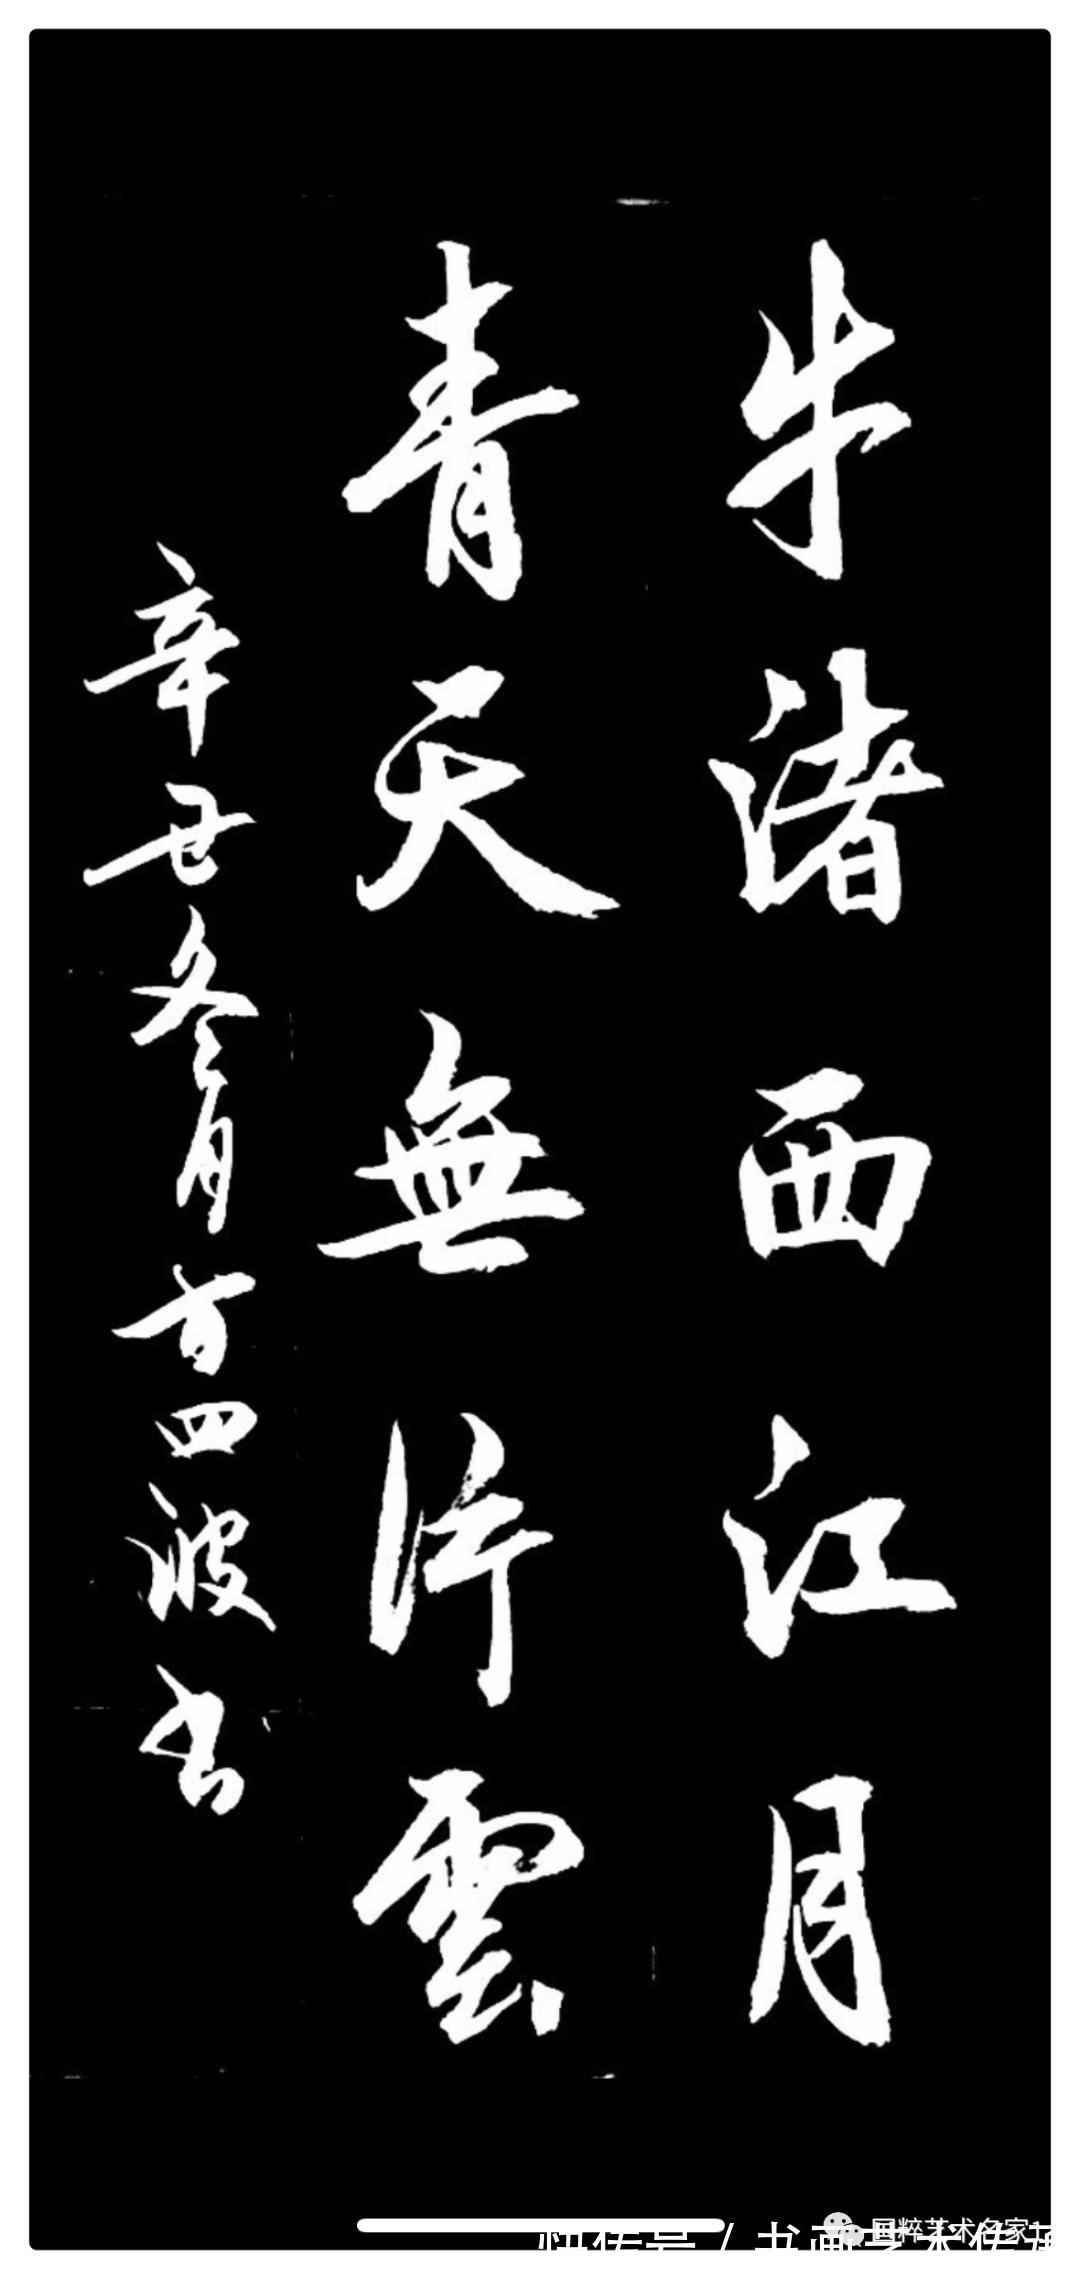 牛渚西江月
青天無片雲
辛丑冬月方四波书
国粹艺术名家